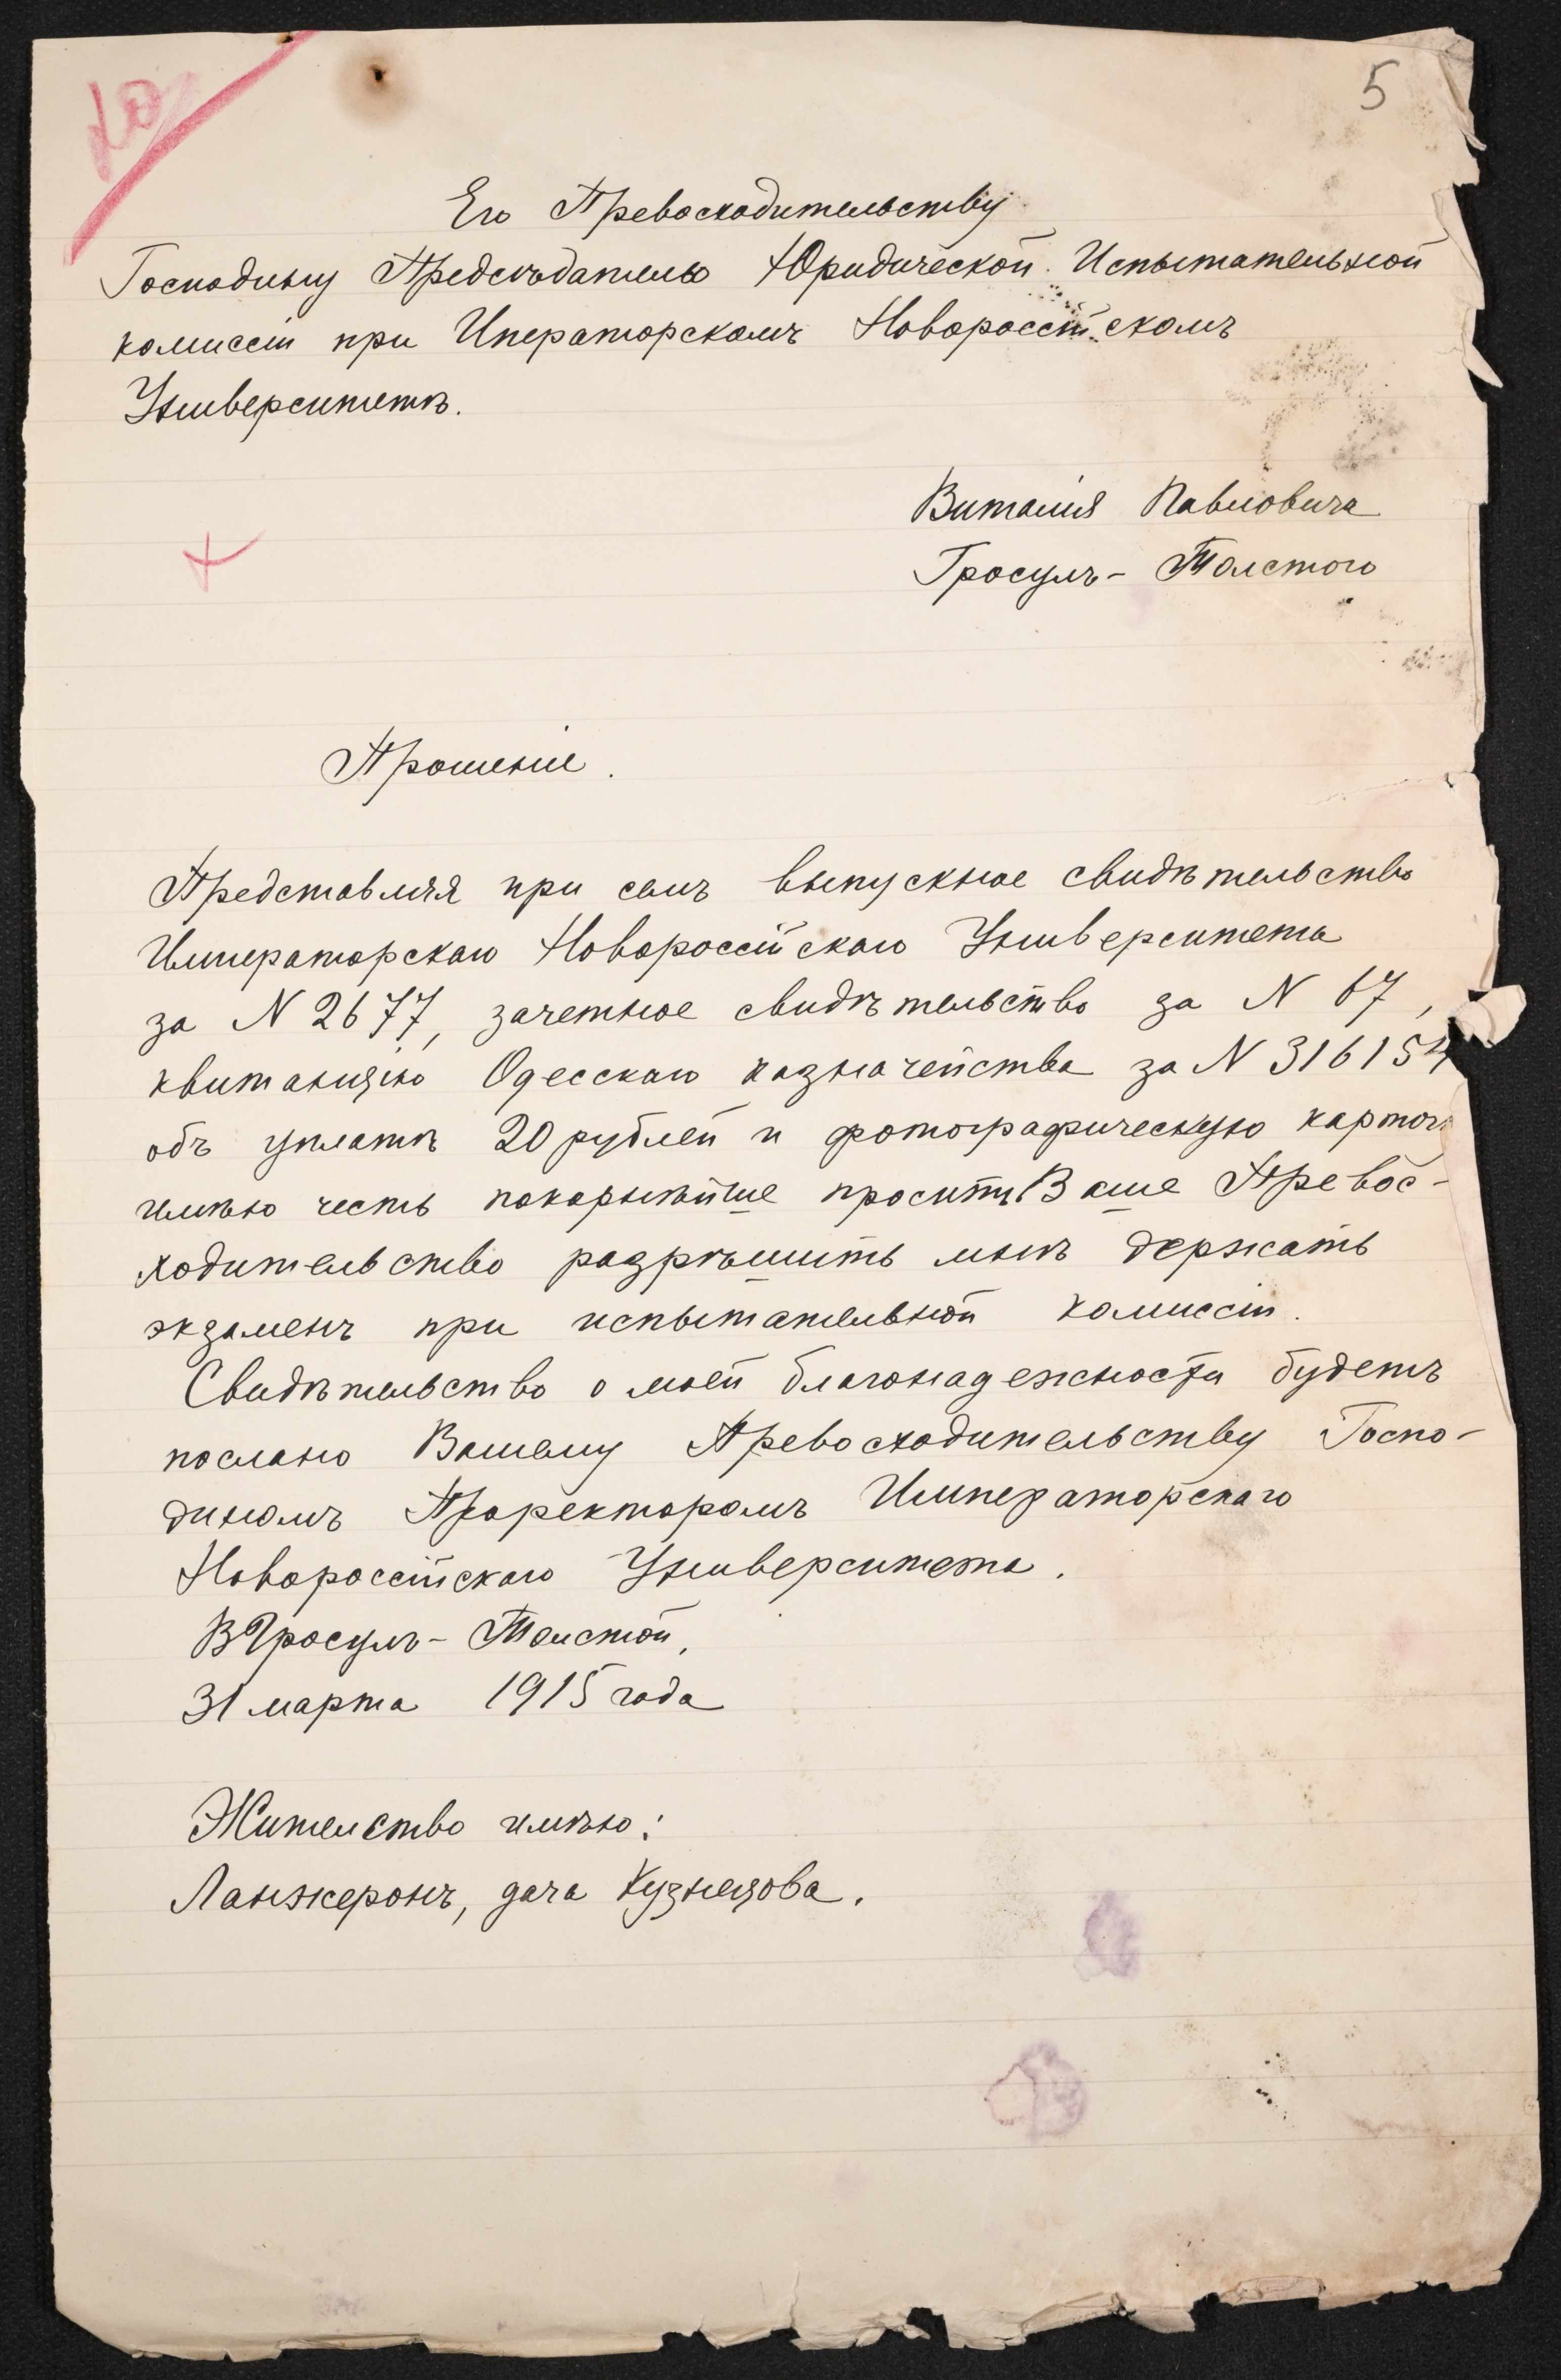 5
Его Превосходительству
Господину Предсѣдателю Юридической Испытательной
комиссіи при Иператорскомъ Новороссійскомъ
Университетѣ.
Виталія Павловича
Гросулъ-Толстого
Прошеніе.
Представляя при семъ выпускное свидѣтельство
Императорскаго Новороссійскаго Университета
за N 2677, зачетное свидѣтельство за N 67,
квитанцію Одесскаго казначейства за N 316154
объ уплатѣ 20 рублей и фотографическую карточ
имѣю честь покорнѣйше просить Ваше Превос-
ходительство разрѣшить мнѣ держать
экзаменъ при испытательной комиссіи.
Свидѣтельство о моей благонадежности будетъ
послано Вашему Превосходительству Госпо-
диномъ Проректоромъ Императорскаго
Новороссійскаго Университета.
В Гросулъ-Толстой,
31 марта 1915 года
Жителство имѣю:
Ланжеронъ, дача Кузнецова.